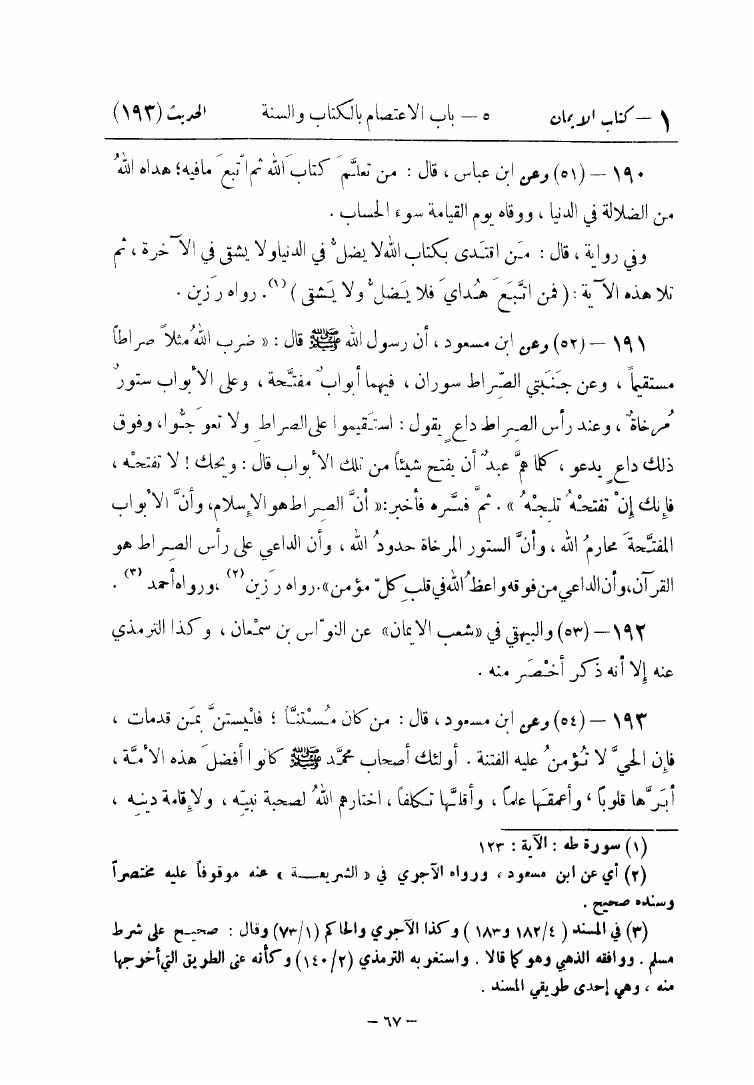 ١ – كتاب الايمان ٥ – باب الاعتصام بالكتاب والسنة الحديث (١٩٣)
١٩٠ – (٥١) وعن ابن عباس ، قال : من تعلَّمَ كتابَ الله ثم اتَّبعَ مافيه؛ هداه اللهُ
من الضلالة في الدنيا ، ووقاه يوم القيامة سوءَ الحساب .
وفي رواية ، قال : مَن اقتدى بكتاب الله لا يضلُّ في الدنيا ولا يشقى في الآخرة ، ثم
تلا هذه الآية : ( فمن اتَّبَعَ هُدايَ فلا يَضلُّ ولا يَشقى ) (١). رواه رَزين .
١٩١ – (٥٢) وعن ابن مسعود ، أن رسول الله ﷺ قال : « ضرب اللهُ مثلاً صراطاً
مستقيماً ، وعن جَنَبتي الصِّراط سوران ، فيهما أبوابٌ مفتَّحة ، وعلى الأبواب ستورٌ
مُرخاةٌ ، وعند رأس الصراط داعٍ يقول : استَقيموا على الصراطِ ولا تعوَجُّوا، وفوق
ذلك داعٍ يدعو ، كلما همَّ عبدٌ أن يفتح شيئاً من تلك الأبواب قال : ويحك ! لا تفتحْه ،
فإنك إنْ تفتحْهُ تلِجْهُ » . ثمَّ فسَّره فأخبر :« أنَّ الصراط هو الإسلام، وأنَّ الأبواب
المفتَّحةَ محارمُ الله ، وأنَّ الستور المرخاة حدودُ الله ، وأن الداعي على رأس الصراط هو
القرآن، وأن الداعي من فوقه واعظُ الله في قلب كلّ مؤمن». رواه رَزين (٢) ،ورواه أحمد (٣) .
١٩٢ – (٥٣) والبيهقي في «شعب الايمان» عن النوّاس بن سمْعان ، وكذا الترمذي
عنه إلا أنه ذكر أخْصَر منه .
١٩٣ – (٥٤) وعن ابن مسعود ، قال : من كان مُسْتنّاً ؛ فليستنَّ بمَن قدمات ،
فإن الحيَّ لا تُؤمنُ عليه الفتنة . أولئك أصحاب محمَّد ﷺ كانوا أفضلَ هذه الأمَّة ،
أبرَّها قلوباً ، وأعمقَها علماً ، وأقلَّها تكلفاً ، اختارهم اللهُ لصحبة نبيّه ، ولإقامة دينه ،
(١) سورة طه : الآية : ١٢٣
(٢) أي عن ابن مسعود ، ورواه الآجري في « الشريعـــة » عنه موقوفاً عليه مختصراً
وسنده صحيح .
(٣) في المسند ( ١٨٢/٤ و١٨٣ ) وكذا الآجري والحاكم (٧٣/١) وقال : صحيح على شرط
مسلم . ووافقه الذهبي وهو كما قالا . واستغربه الترمذي (١٤٠/٢) وكأنه عنى الطريق التي أخرجها
منه ، وهي إحدى طريقي المسند .
– ٦٧ –